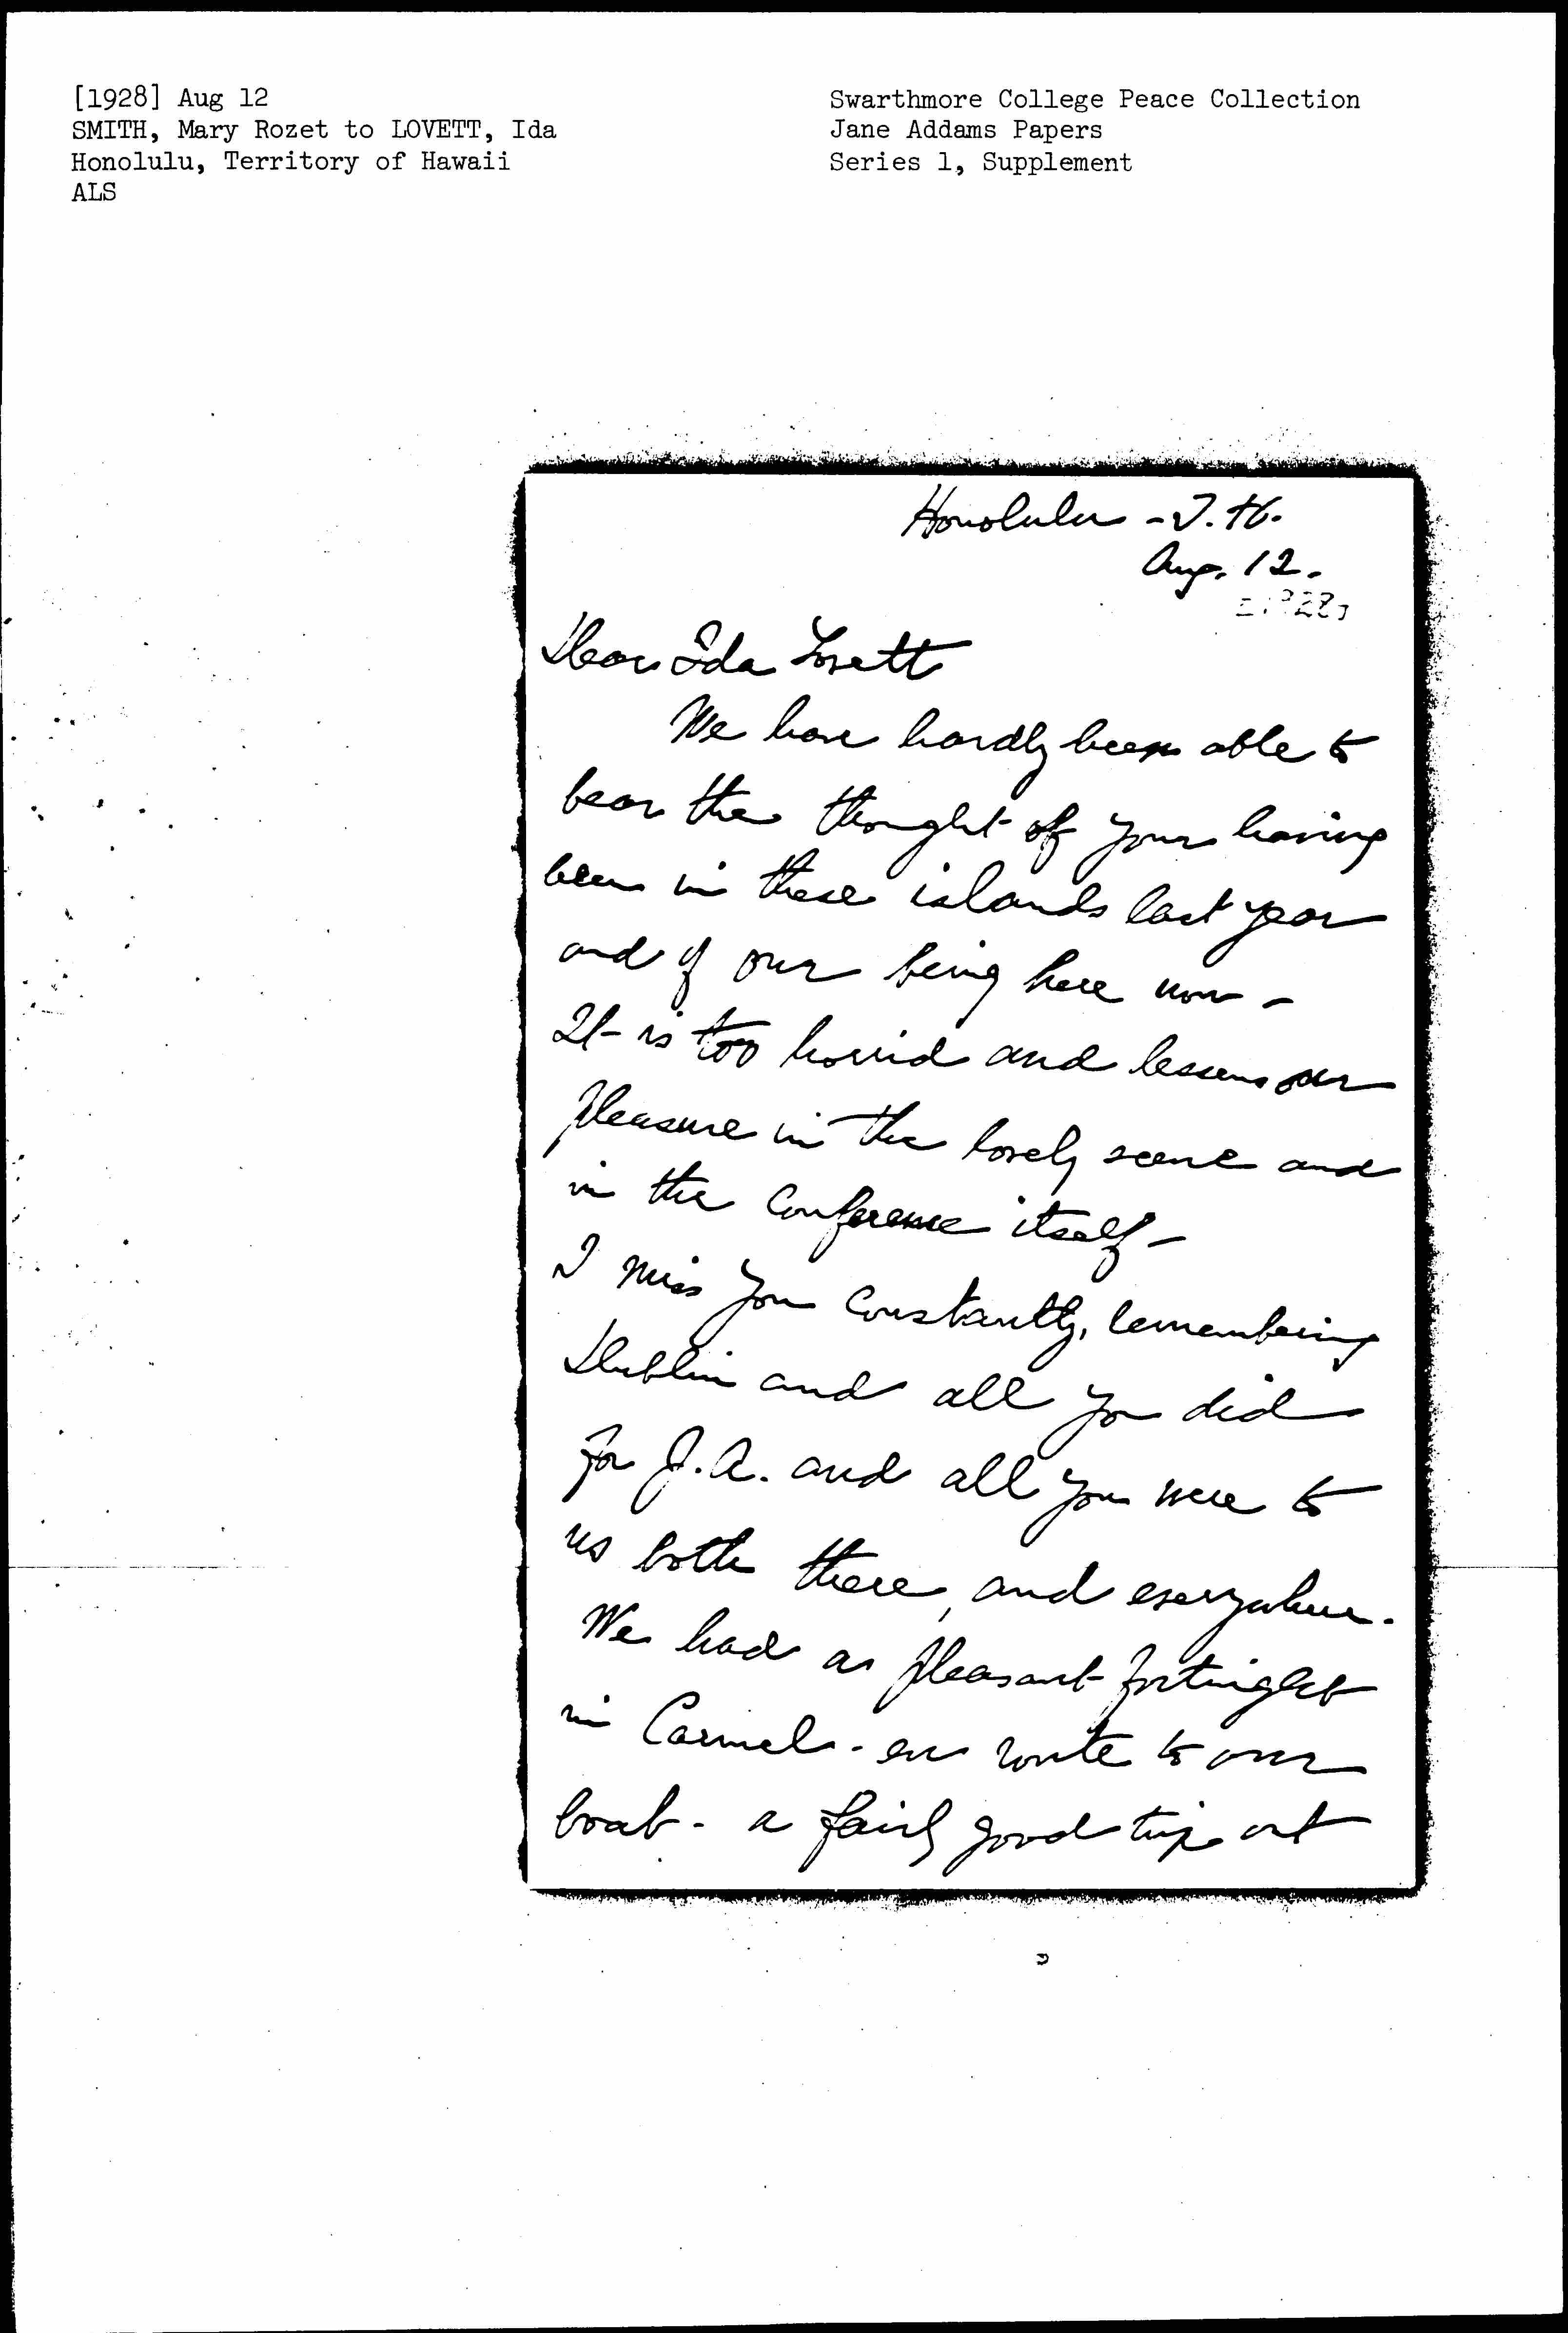 [1928] Aug 12
SMITH, Mary Rozet to LOVETT, Ida
Honolulu, Territory of Hawaii
ALS
Swarthmore College Peace Collection
Jane Addams Papers
Series 1, Supplement
Honolulu - T.H.
Aug. 12.
[1928]
Dear Ida Lovett
We have hardly been able to
bear the thought of your having
been in these islands last year
and of our being here now -
It is too horrid and lessens our
pleasure in the lovely scene and
in the Conference itself -
I miss you constantly, remembering
Dublin and all you did
for J.A. and all you were to
us both there, and everywhere.
We had a pleasant fortnight
in Carmel - en route to our
boat - a fairly good trip out